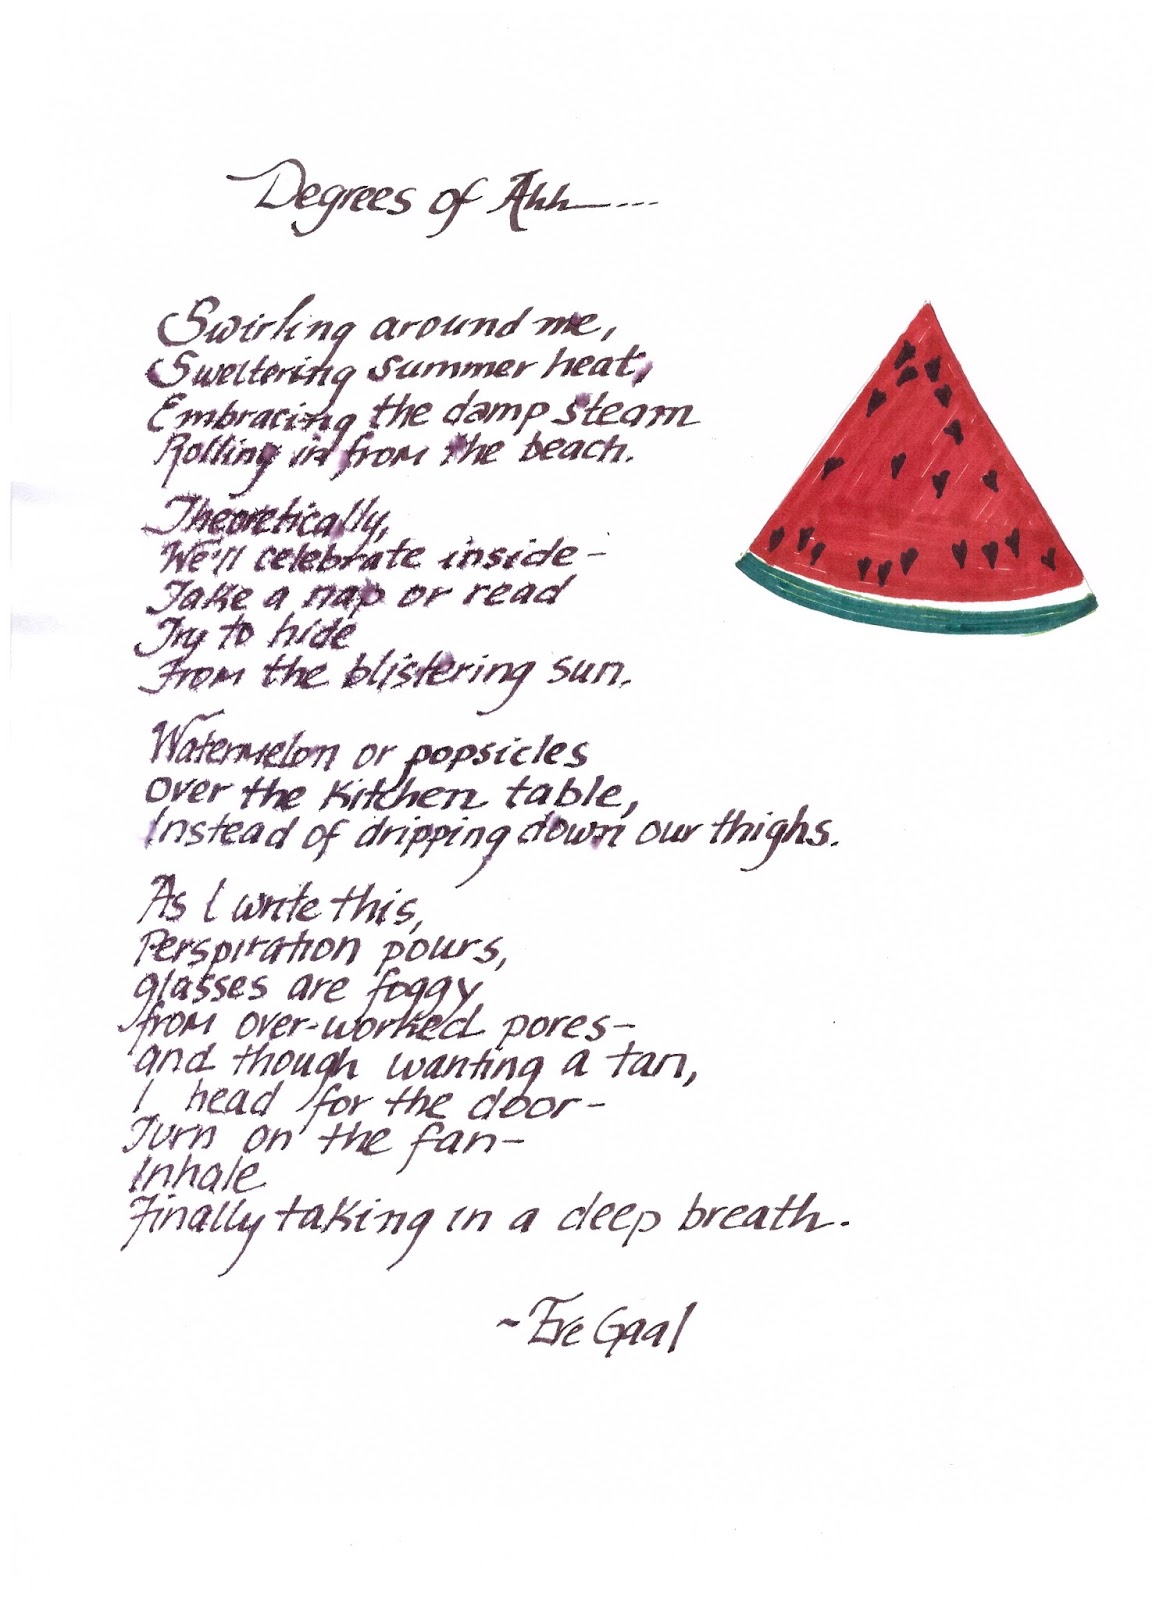 Degrees of Ahh....
Swirling around me,
Sweltering summer heat,
Embracing the damp steam
Rolling in from the beach.
Theoretically,
We'll celebrate inside-
Take a nap or read
Try to hide
From the blistering sun.
Watermelon or popsicles
over the kitchen table,
Instead of dripping down our thighs.
As I write this,
Perspiration pours,
glasses are foggy
from over-worked pores-
and though wanting a tan,
I head for the door-
Turn on the fan-
Inhale
Finally taking in a deep breath.
~Eve Gaal